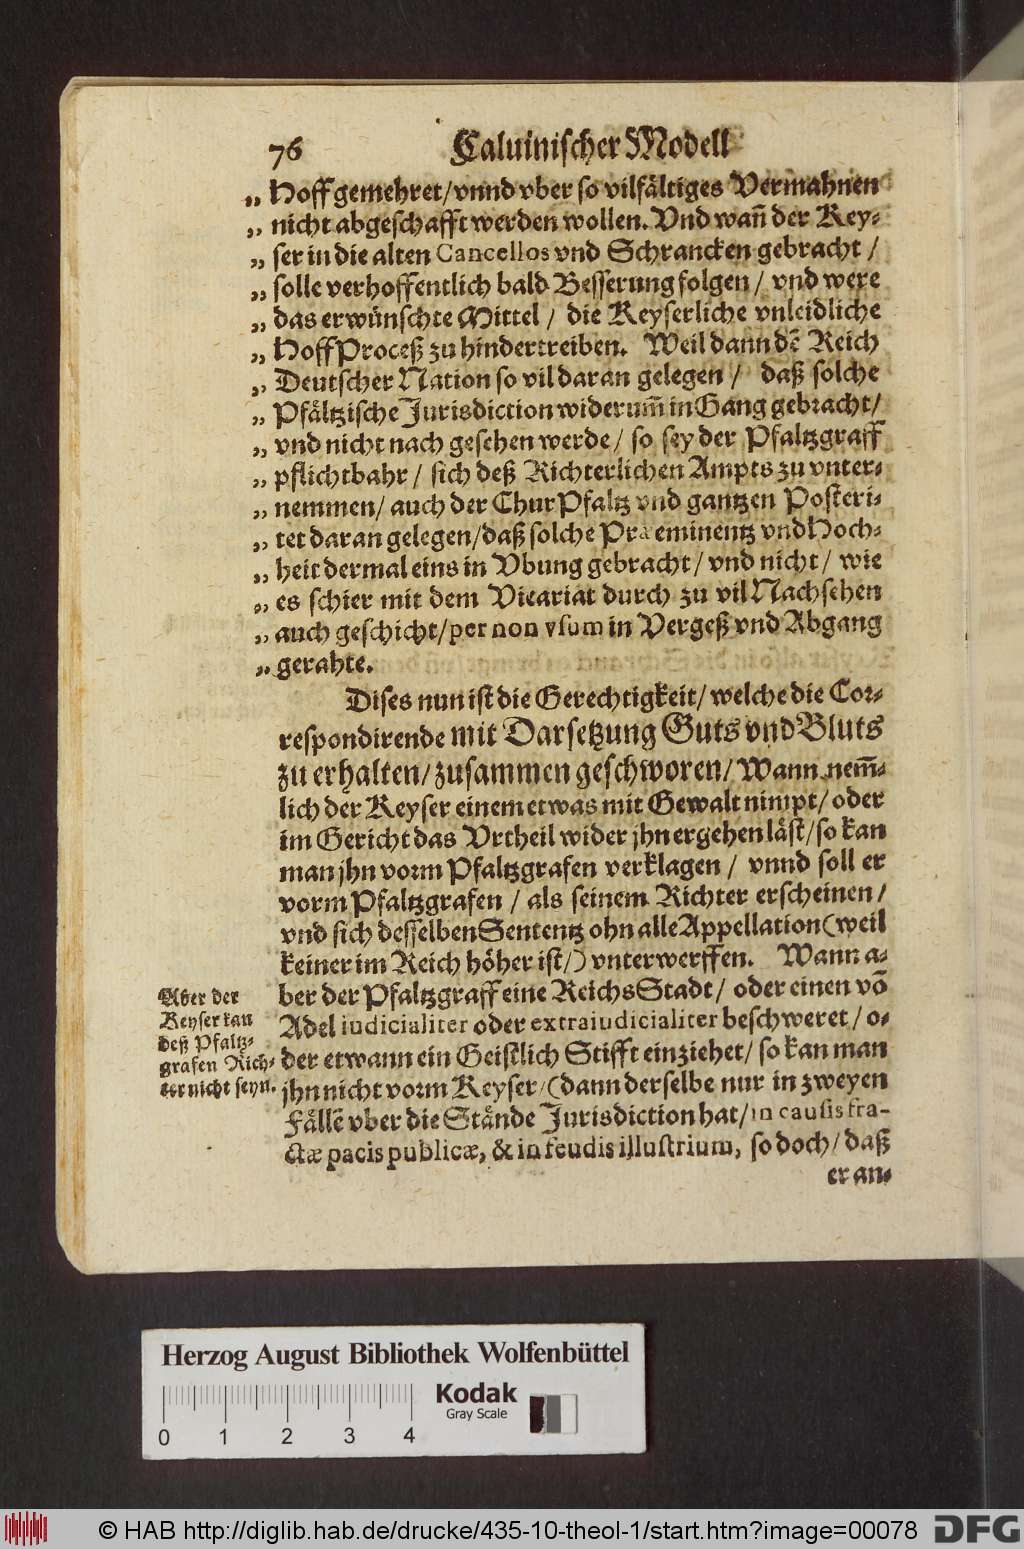 76 Caluinischer Modell
„ Hoff gemehret/ vnnd vber so vilfältiges Vermahnen
„ nicht abgeschafft werden wollen. Vnd wañ der Key-
„ ser in die alten Cancellos vnd Schrancken gebracht /
„ solle verhoffentlich bald Besserung folgen / vnd were
„ das erwünschte Mittel / die Keyserliche vnleidliche
„ HoffProceß zu hindertreiben. Weil dann dē Reich
„ Deutscher Nation so vil daran gelegen / daß solche
„ Pfältzische Jurisdiction widerum̄ in Gang gebracht/
„ vnd nicht nach gesehen werde / so sey der Pfaltzgraff
„ pflichtbahr / sich deß Richterlichen Ampts zu vnter-
„ nemmen/ auch der ChurPfaltz vnd gantzen Posteri-
„ tet daran gelegen/daß solche Praeeminentz vnd Hoch-
„ heit dermal eins in Vbung gebracht/ vnd nicht / wie
„ es schier mit dem Vicariat durch zu vil Nachsehen
„ auch geschicht/per non vsum in Vergeß vnd Abgang
„ gerahte.
Dises nun ist die Gerechtigkeit/ welche die Cor-
respondirende mit Darsetzung Guts vnd Bluts
zu erhalten/ zusammen geschworen/ Wann nem̄-
lich der Keyser einem etwas mit Gewalt nimpt/ oder
im Gericht das Vrtheil wider jhn ergehen läst/ so kan
man jhn vorm Pfaltzgrafen verklagen / vnnd soll er
vorm Pfaltzgrafen / als seinem Richter erscheinen /
vnd sich desselben Sententz ohn alle Appellation (weil
keiner im Reich höher ist/) vnterwerffen. Wann a-
ber der Pfaltzgraff eine ReichsStadt / oder einen võ
Adel iudicialiter oder extraiudicialiter beschweret / o-
der etwann ein Geistlich Stifft einziehet/ so kan man
jhn nicht vorm Keyser/ (dann derselbe nur in zweyen
Fällē vber die Stände Jurisdiction hat/ in causis fra-
ctæ pacis publicæ, & in feudis illustrium, so doch / daß
er an-
Aber der
Keyser kan
deß Pfaltz-
grafen Rich-
ter nicht seyn.
Herzog August Bibliothek Wolfenbüttel
Kodak
Gray Scale
0 1 2 3 4
© HAB http://diglib.hab.de/drucke/435-10-theol-1/start.htm?image=00078
DFG